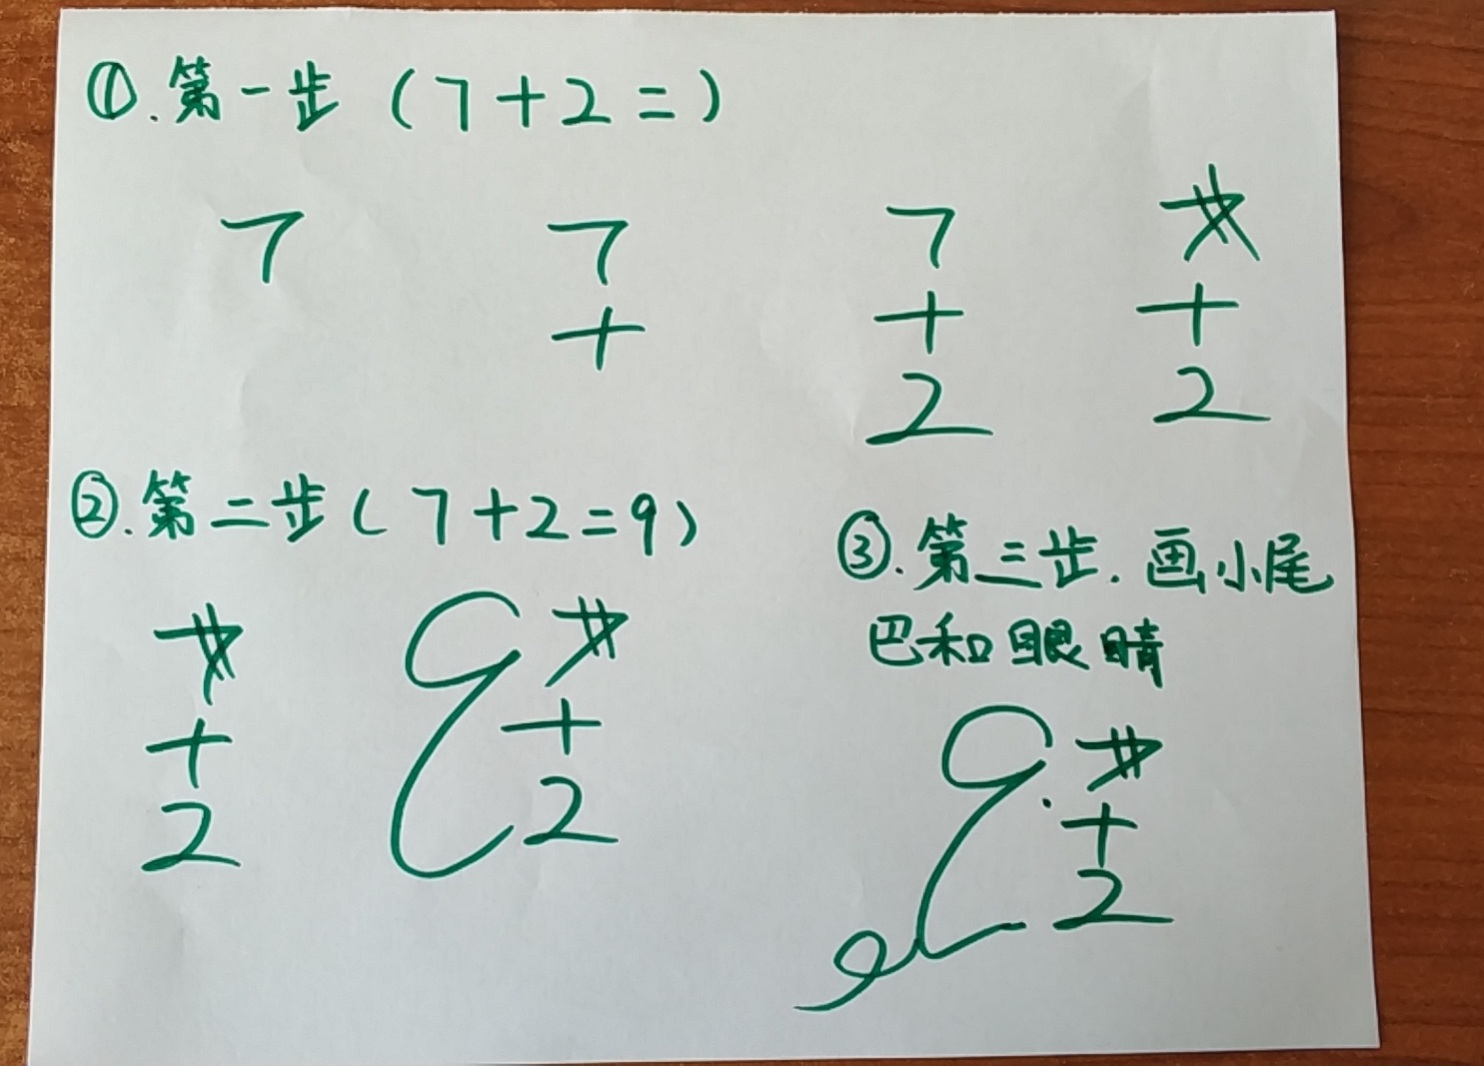 ①.第一步(7+2=)
7 7 7 7
+ + +
2 2
②.第二步(7+2=9)
7 9 7
+ +
2 2
③.第三步.画小尾
巴和眼睛
9 7
+
2